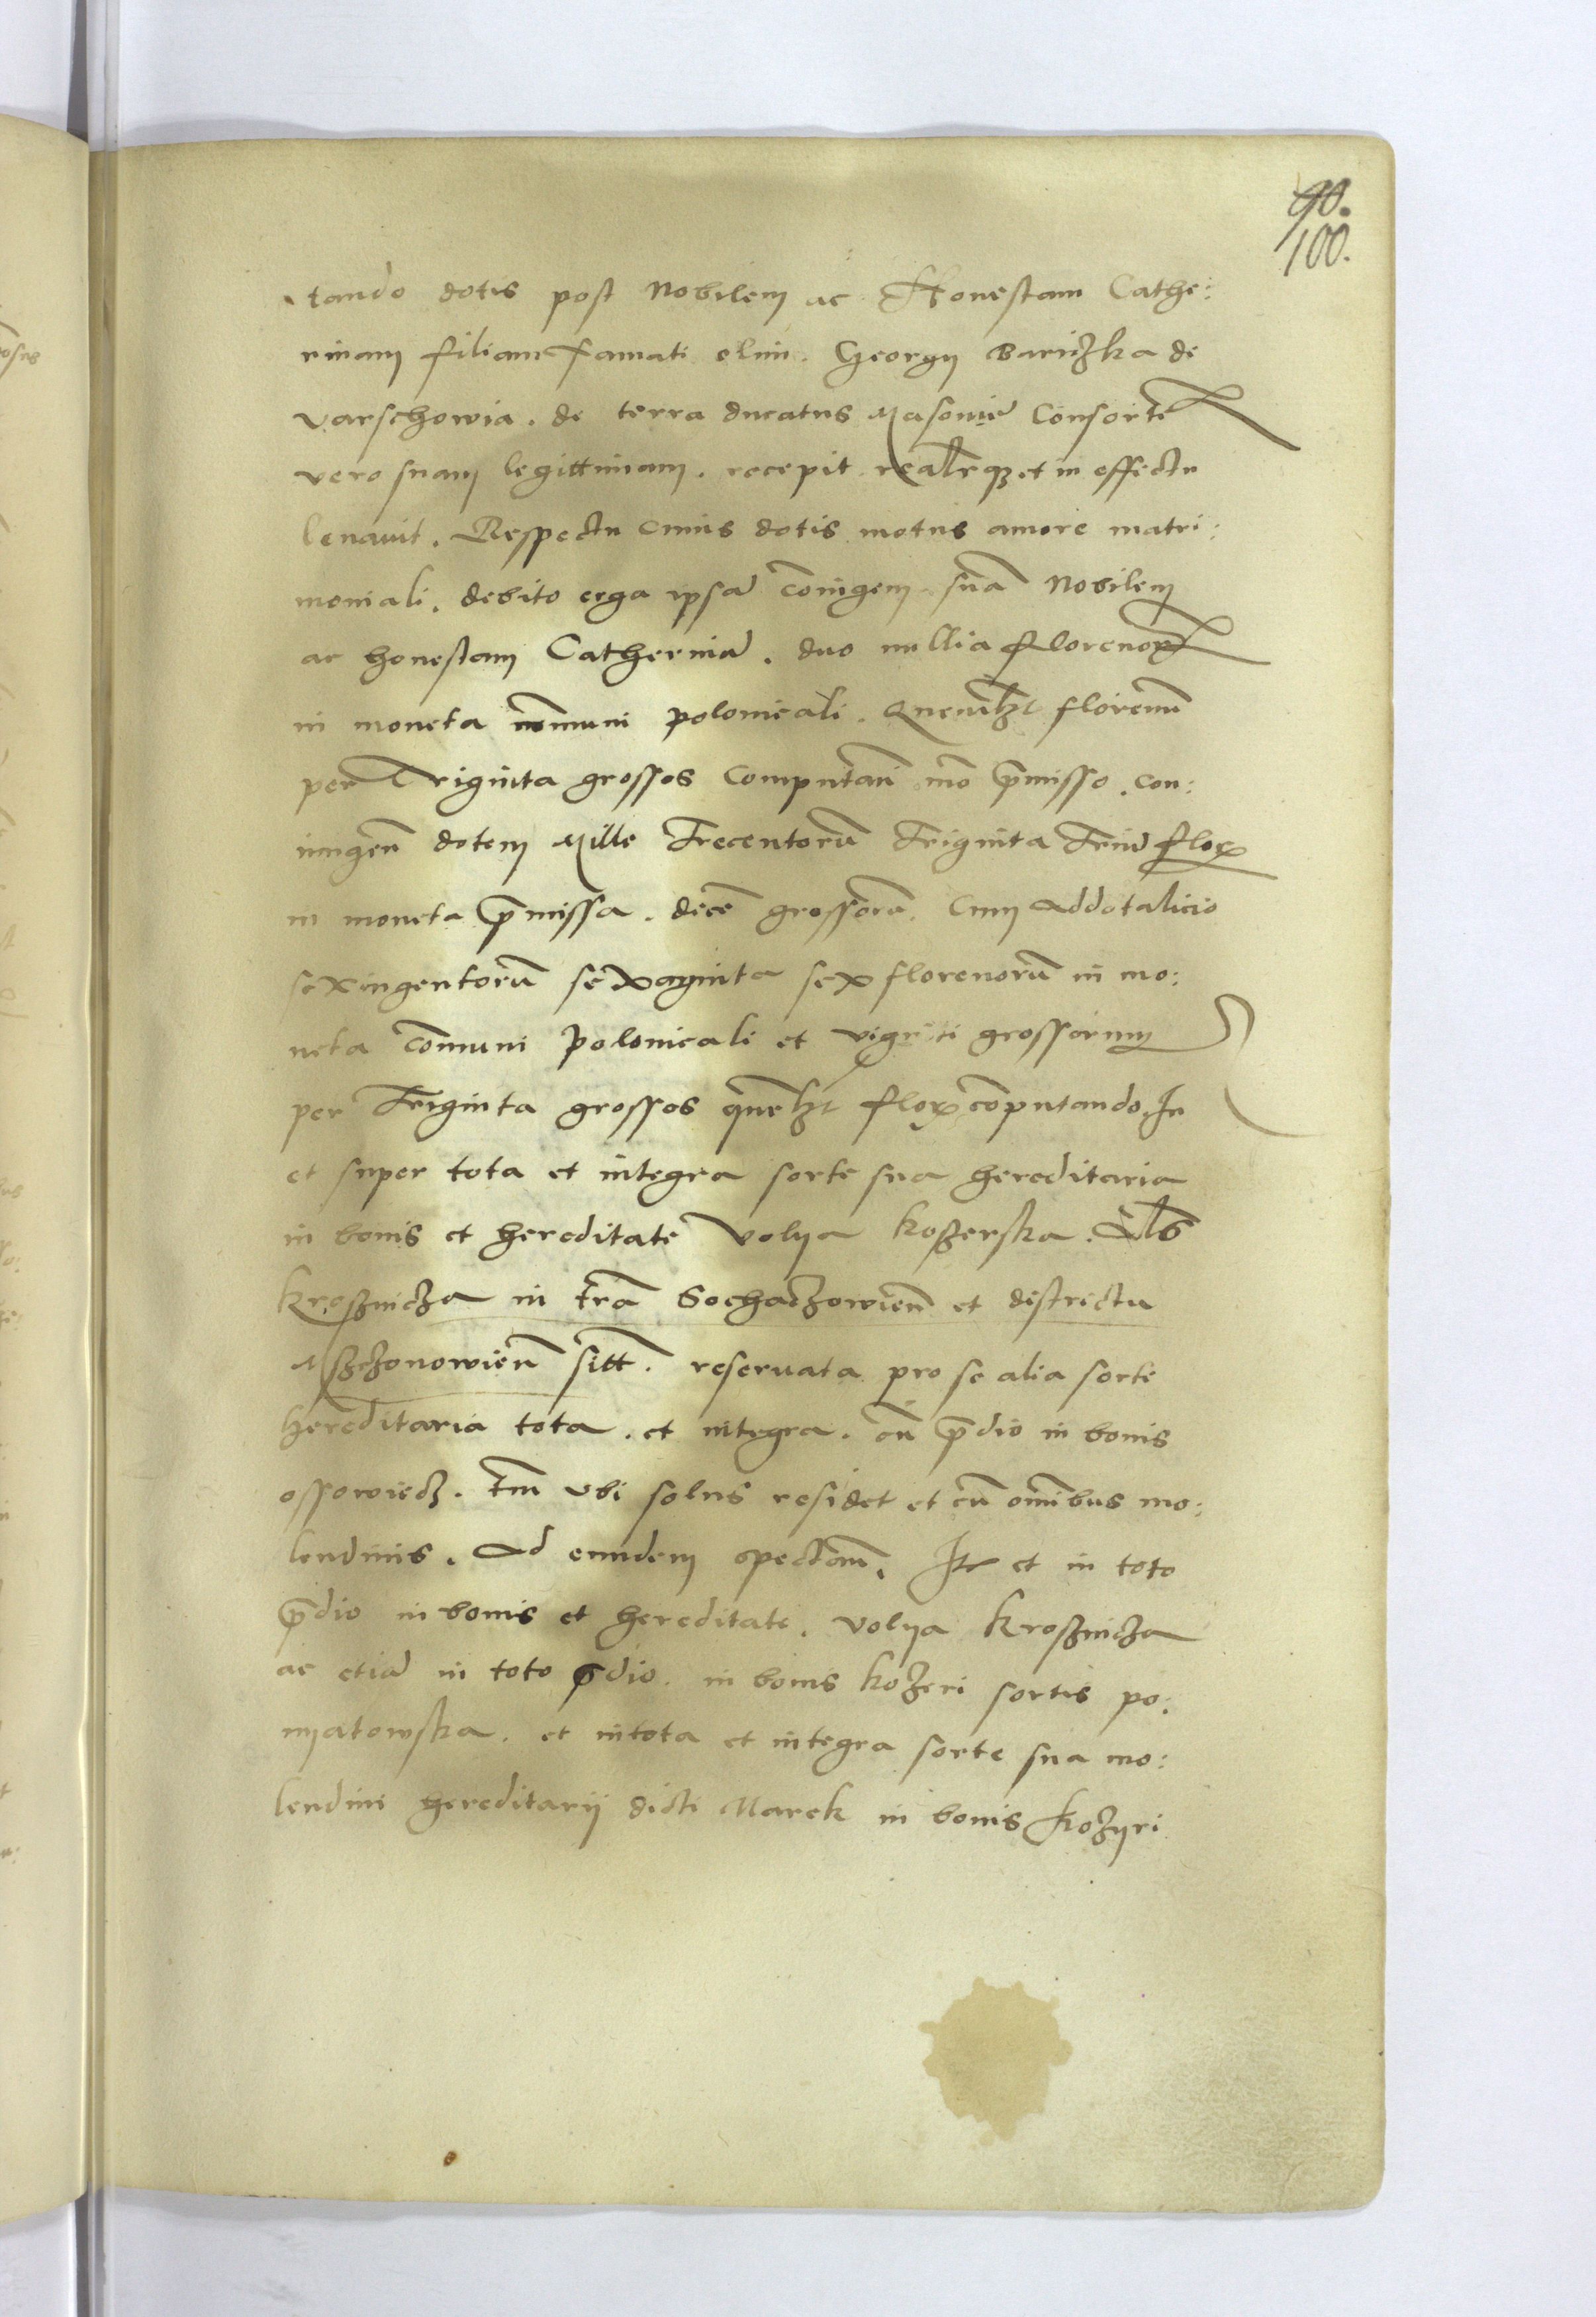 90.
100.
tando dotis post Nobilem ac Honestam Cathe:
rinam filiam Famati olim. Georgy Bariczka de
Varschowia. de terra ducatus Masovie Consorte
vero suam legittimam. recepit realrqz et in effectu
levavit. Respectu cuius dotis motus amore matri:
moniali. debito erga ipsā cōiugem suā Nobilem
ac honestam Catherinā. duo millia florenoꝝ
in moneta cōmuni polonicali. Quemlꝫt florenū
per Triginta grossos Computań mō p̄misso. con:
iungeń dotem Mille Trecentorū Triginta Triū floꝝ
in moneta p̄missa. decē grossorū. Cum addotalicio
sexingentorū sexaginta sex florenorū in mo:
neta cōmuni Polonicali et viginti grossorum
per Triginta grossos quēlꝫt floꝝ cōputando. In
et super tota et integra sorte sua hereditaria
in bonis et hereditate Volya koszerska. Als
Kroszniczа in t̄ra Sochaczowień et districtu
Msczonowień sitt. reservata pro se alia sorte
hereditaria tota. et integra. cū p̄dio in bonis
ossowiecz. tm̄ ubi solus residet et cū om̄ibus mo:
lendinis. Ad eundem spectań. It et in toto
p̄dio in bonis et hereditate. Volya Kroszniczа
ac etiā in toto p̄dio. in bonis kozeri sortis po:
nyatowska. et in tota et integra sorte sua mo:
lendini hereditarij dicti Marek in bonis Kozyri